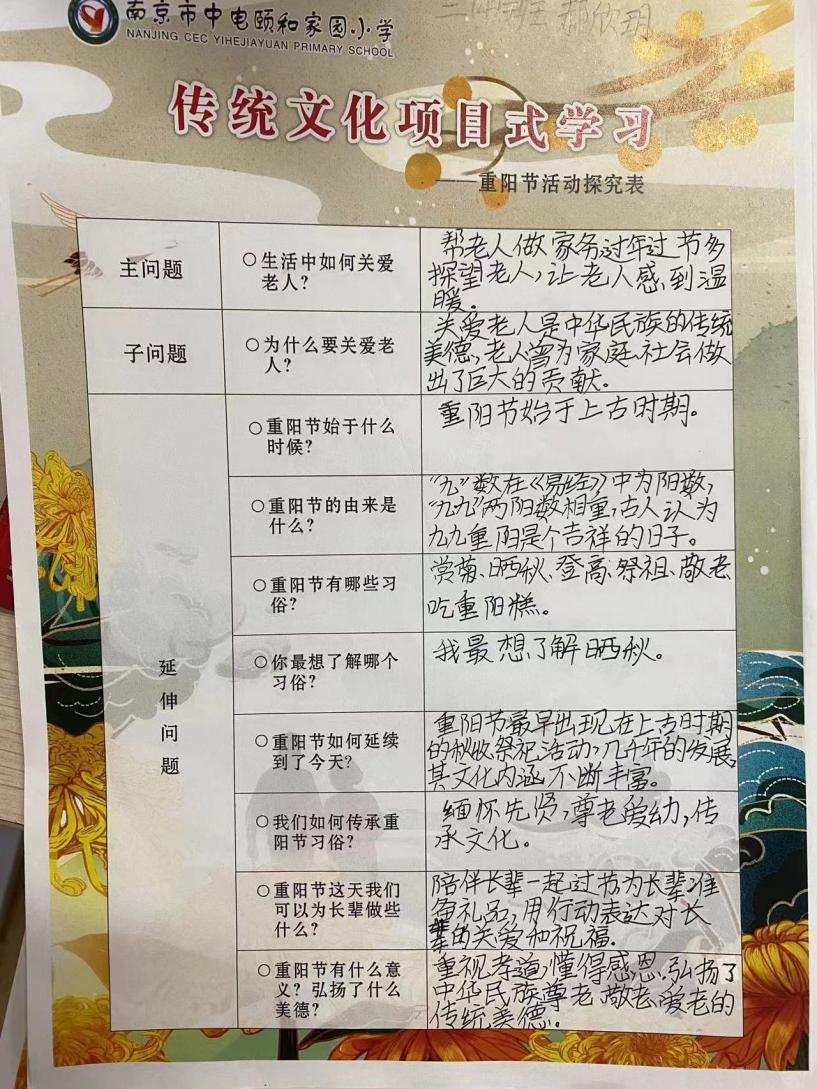 南京市中电颐和家园小学
NANJING CEC YIHEJIAYUAN PRIMARY SCHOOL
郝欣玥
传统文化项目式学习
——重阳节活动探究表
主问题
○生活中如何关爱
老人?
帮老人做家务过年过节多
探望老人,让老人感到温
暖。
子问题
○为什么要关爱老
人?
关爱老人是中华民族的传统
美德,老人曾为家庭、社会做
出了巨大的贡献。
延伸问题
○重阳节始于什么
时候?
重阳节始于上古时期。
○重阳节的由来是
什么?
“九”数在《易经》中为阳数,
“九九”两阳数相重,古人认为
九九重阳是个吉祥的日子。
○重阳节有哪些习
俗?
赏菊、晒秋、登高、祭祖、敬老
吃重阳糕。
○你最想了解哪个
习俗?
我最想了解晒秋。
○重阳节如何延续
到了今天?
重阳节最早出现在上古时期
的秋收祭祀活动,几千年的发展,
其文化内涵不断丰富。
○我们如何传承重
阳节习俗?
缅怀先贤,尊老爱幼,传
承文化。
○重阳节这天我们
可以为长辈做些
什么?
陪伴长辈一起过节为长辈准
备礼品,用行动表达对长
辈的关爱和祝福.
○重阳节有什么意
义?弘扬了什么
美德?
重视孝道,懂得感恩.弘扬了
中华民族尊老、敬老、爱老的
传统美德.